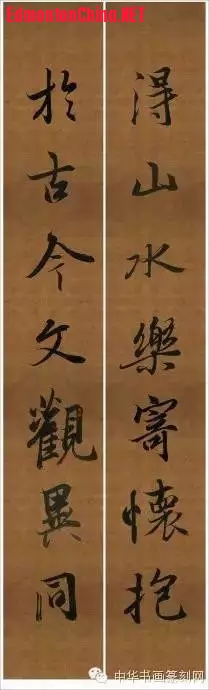 EdmontonChina.NET
得山水樂寄懷抱
於古今文觀異同
中华书画篆刻网